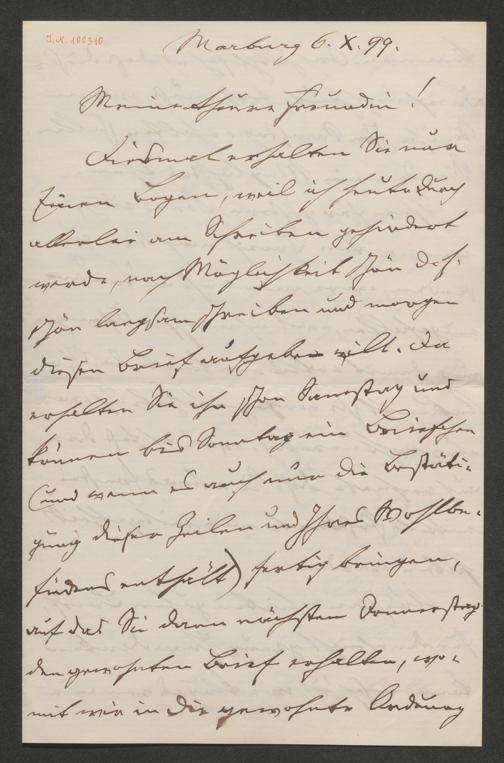 I.N. 100310
Marburg 6. X. 99.
Meine theure Freundin!
Diesmal erhalten Sie nur
Einen Bogen, weil ich heute durch
allerlei am Schreiben gehindert
werde, nach Möglichkeit schön d. h.
schön langsam schreiben und morgen
diesen Brief aufgeben will. Da
erhalten Sie ihn schon Samstag und
können bis Sonntag ein Briefchen
(und wenn es auch nur die Bestäti-
gung dieser Zeilen und Ihres Wohlbe-
findens enthält) fertig bringen,
auf das Sie dann nächsten Donnerstag
den gewohnten Brief erhalten, wo-
mit wir in die gewohnte Ordnung